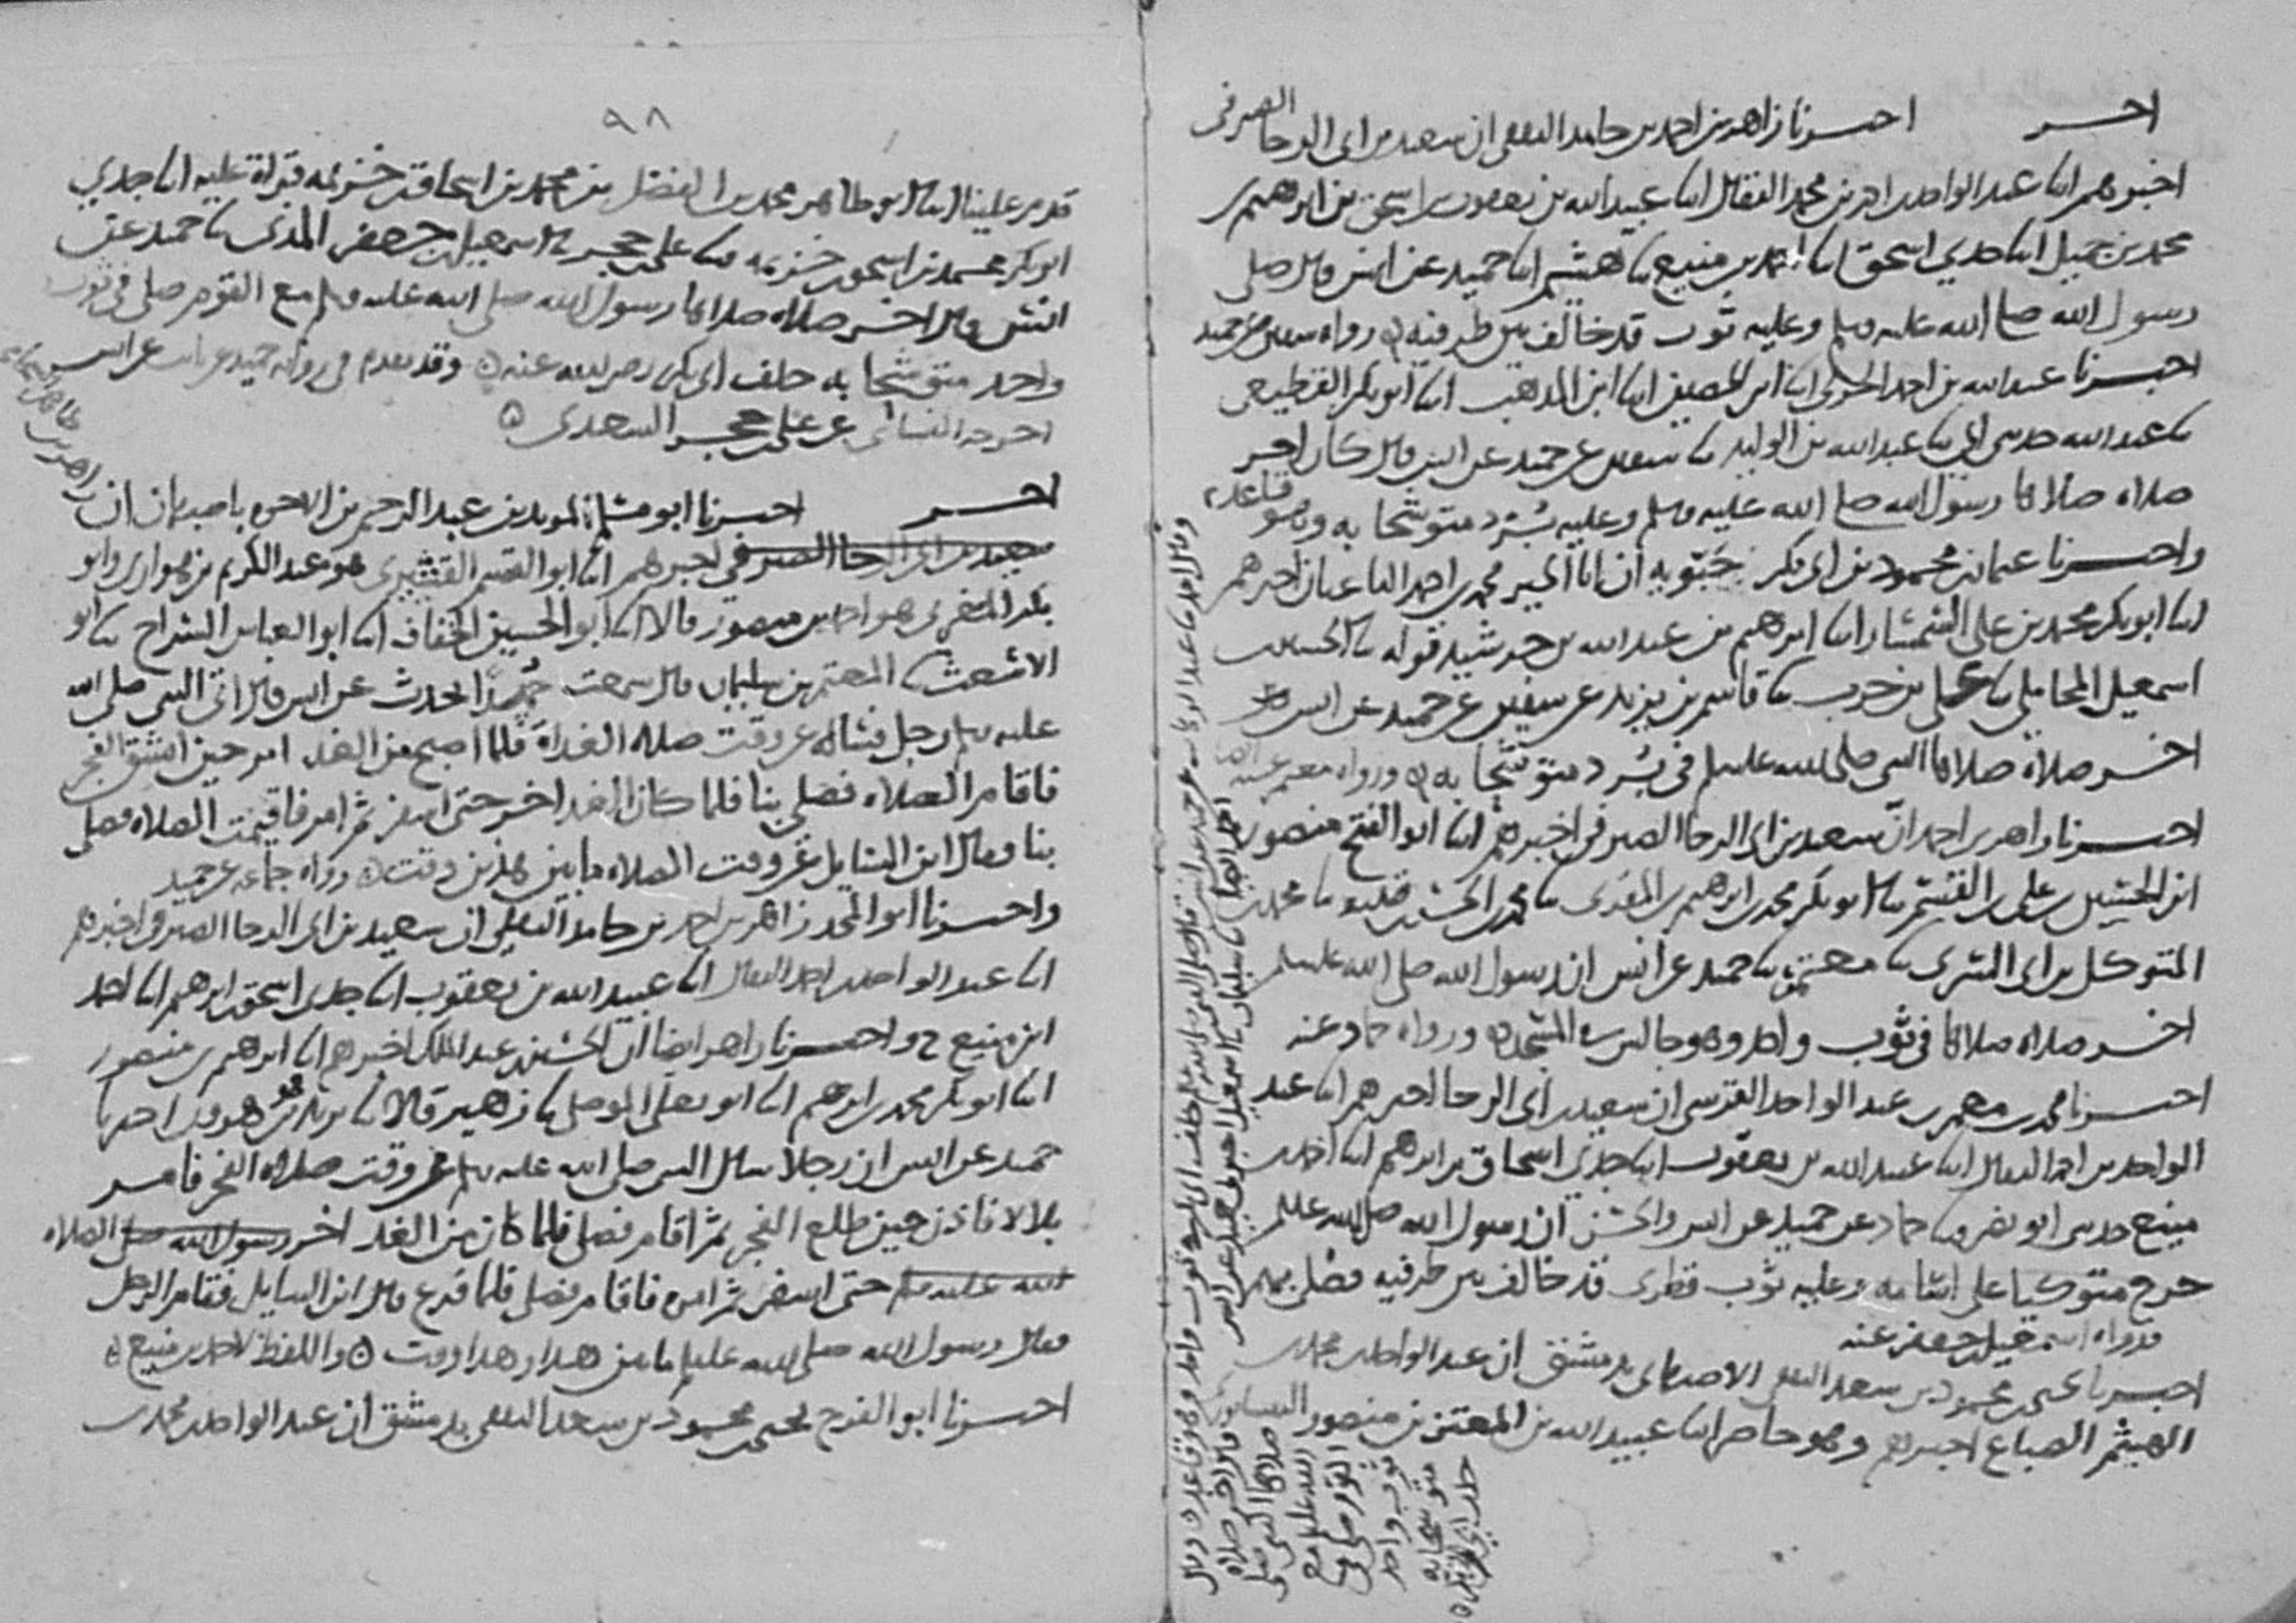 اخر احبرنا زاهر بن احمد بن حامد الثقفي ان سعيد بن ابي الرجا الصيرفي
اخبرهم ابنا عبد الواحد بن احمد بن محمد البقال ابنا عبيد الله بن يعقوب بن اسحق بن ابرهيم بن
محمد بن جميل ابنا جدي اسحق ابنا احمد بن منيع نا هشيم ابنا حميد عن انس قال صلى
رسول الله صلى الله عليه وسلم وعليه ثوب قد خالف بين طرفيه رواه سفين عن حميد
احبرنا عبد الله بن احمد الحربي ابنا ابن الحصين ابنا ابن المذهب ابنا ابو بكر القطيعي
نا عبد الله حدثني ابي نا عبد الله بن الوليد نا سفين عن حميد عن انس قال كان اخر
صلاة صلاها رسول الله صلى الله عليه وسلم وعليه برد متوشحا به وهو قاعد
واحبرنا عثمان بن محمود بن ابي بكر بن حبويه ان ابا الخير محمد بن احمد الباغبان اخبرهم
ابنا ابو بكر محمد بن علي السمسار ابنا ابرهيم بن عبد الله بن خرشيد قوله نا الحسين بن
اسمعيل المحاملي نا علي بن حرب نا قاسم بن يزيد عن سفين عن حميد عن انس
اخر صلاة صلاها النبي صلى الله عليه وسلم في برد متوشحا به ورواه معمر عنه
احبرنا زاهر بن احمد ان سعيد بن ابي الرجا الصيرفي اخبرهم ابنا ابو الفتح منصور
ابن الحسين بن علي بن القسم نا ابو بكر محمد بن ابرهيم بن المقرى نا محمد بن الحسن بن قتيبه نا محمد بن
المتوكل بن ابي السري نا معتمر نا حميد عن انس ان رسول الله صلى الله عليه وسلم
اخر صلاة صلاها في ثوب واحد وهو جالس ورواه حماد عنه
احبرنا محمد بن معمر بن عبد الواحد القرشي ان سعيد بن ابي الرجا اخبرهم ابنا عبد
الواحد بن احمد البقال ابنا عبيد الله بن يعقوب ابنا جدي اسحاق بن ابرهيم ابنا احمد بن
منيع حدثني ابو نصر نا حماد عن حميد عن انس والحسن ان رسول الله صلى الله عليه وسلم
خرج متوكيا على اسامه وعليه ثوب قطري قد خالف بين طرفيه فصلى بهم
ورواه اسمعيل بن جعفر عنه
احبرنا يحيى بن محمود بن سعد الثقفي الاصبهاني بدمشق ان عبد الواحد بن محمد بن
الهيثم الصباغ اخبرهم وهو حاضر ابنا عبيد الله بن المعتز بن منصور النيسابوري
قال اخر صلاة
صلاها النبي صلى
الله عليه وسلم مع
القوم صلى في
ثوب واحد
متوشحا به
خلف ابي بكر
٩٨
قدم علينا ابنا ابو طاهر محمد بن الفضل بن محمد بن اسحاق بن خزيمه قراة عليه ابنا جدي
ابو بكر محمد بن اسحق بن خزيمه نا علي بن حجر نا اسمعيل بن جعفر المدني نا حميد عن
انس قال اخر صلاة صلاها رسول الله صلى الله عليه وسلم مع القوم صلى في ثوب
واحد متوشحا به خلف ابي بكر رضي الله عنه وقد تقدم في رواية حميد عن ثابت عن انس
اخرجه النسائي عن علي بن حجر السعدي
اخر احبرنا ابو مسلم المويد بن عبد الرحيم بن الاخوه باصبهان ان زاهر بن طاهر الشحامي
سعيد بن ابي الرجا الصيرفي اخبرهم ابنا ابو القسم القشيري هو عبد الكريم بن هوازن وابو
بكر المغربي هو احمد بن منصور قالا ابنا ابو الحسين الخفاف ابنا ابو العباس السراج نا ابو
الاشعث نا المعتمر بن سليمان قال سمعت حميدا يحدث عن انس قال اتى النبي صلى الله
عليه وسلم رجل فساله عن وقت صلاة الغداة فلما اصبح من الغد امر حين انشق الفجر
فاقام الصلاه فصلى بنا فلما كان الغد اخر حتى اسفر ثم امر فاقيمت الصلاه فصلى
بنا وقال اين السايل عن وقت الصلاه ما بين هذين وقت رواه جماعه عن حميد
واحبرنا ابو المجد زاهر بن احمد بن حامد الثقفي ان سعيد بن ابي الرجا الصيرفي اخبرهم
ابنا عبد الواحد بن احمد البقال ابنا عبيد الله بن يعقوب ابنا جدي اسحق بن ابرهيم ابنا احمد
ابن منيع ح واحبرنا زاهر ايضا ان الحسين بن عبد الملك اخبرهم ابنا ابرهيم بن منصور
ابنا ابو بكر محمد بن ابرهيم ابنا ابو يعلى الموصلي نا زهير قالا نا يزيد بن هرون ابنا
حميد عن انس ان رجلا سال النبي صلى الله عليه وسلم عن وقت صلاة الفجر فامر
بلالا فاذن حين طلع الفجر ثم اقام فصلى فلما كان من الغد اخر رسول الله صلى الصلاه
الله عليه وسلم حتى اسفر ثم امره فاقام فصلى فلما فرغ قال اين السايل فقام الرجل
فقال رسول الله صلى الله عليه وسلم ما بين هذا وهذا وقت واللفظ لاحمد بن منيع
احبرنا ابو الفرج يحيى بن محمود بن سعد الثقفي بدمشق ان عبد الواحد بن محمد بن